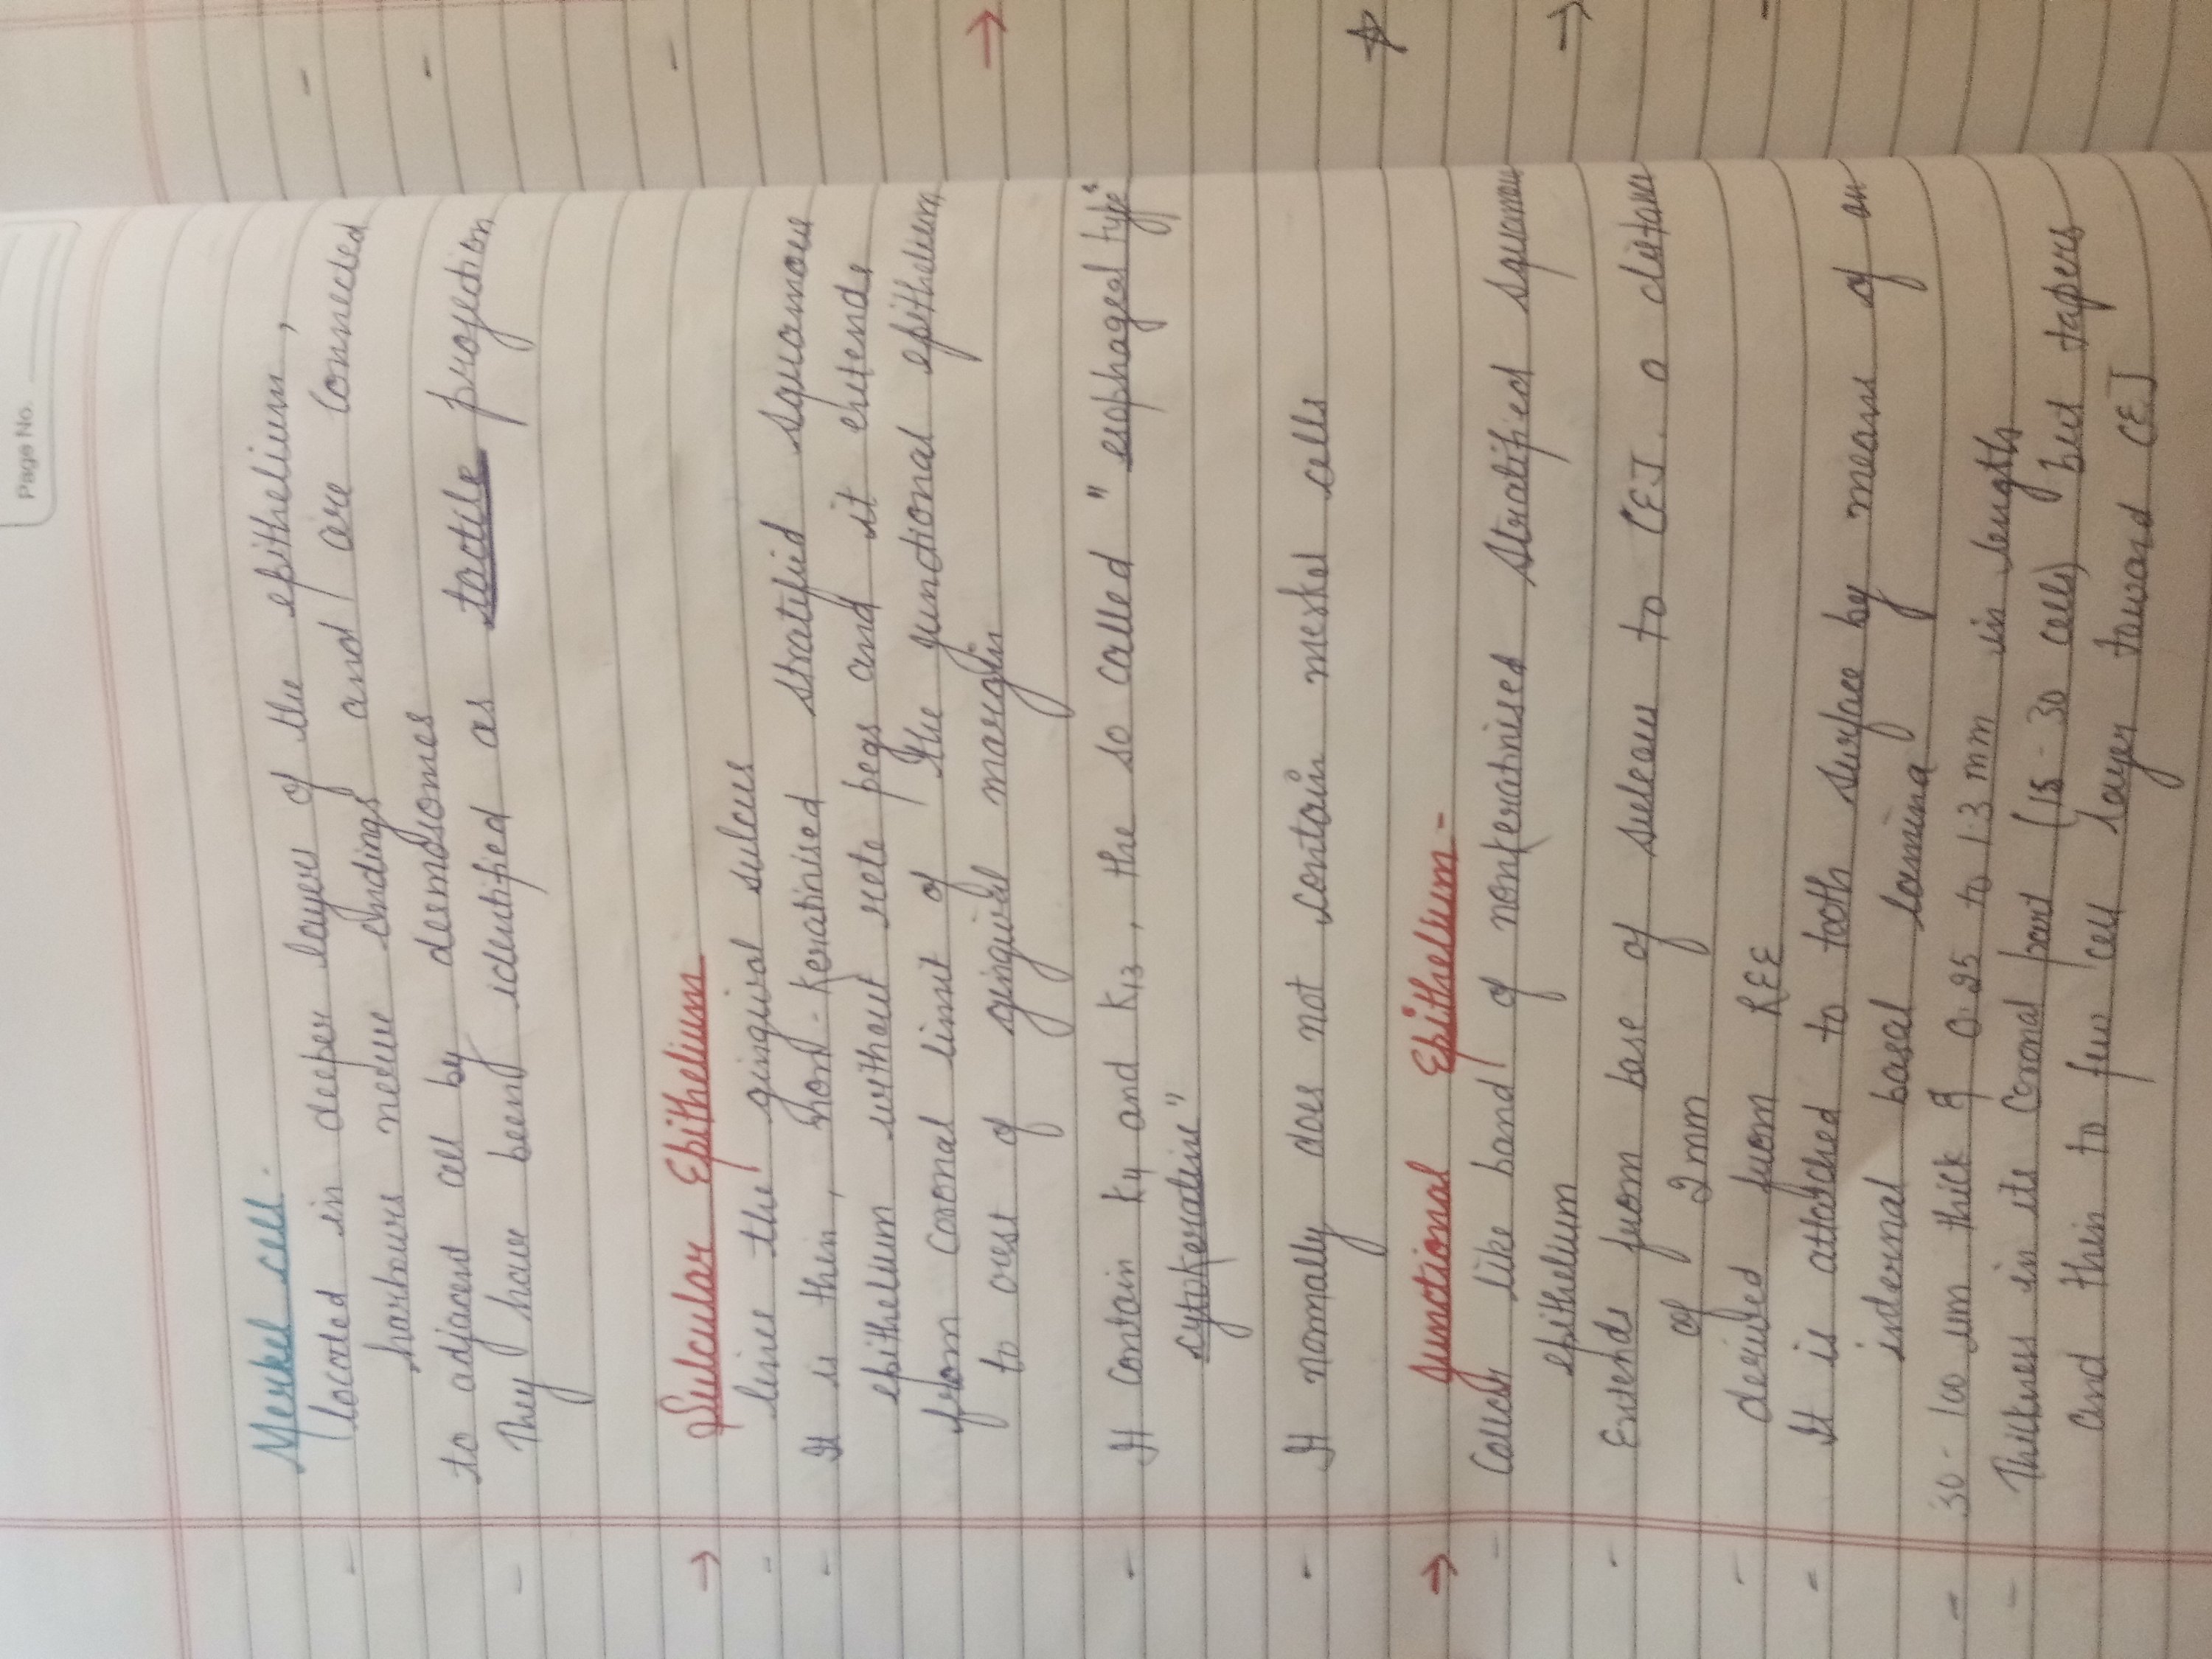 Page No.
Merkel cell.
- located in deeper layer of the epithelium,
harbours nerve endings and are connected
to adjacent cell by desmosomes
- They have been identified as tactile projection
→ Sulcular Epithelium
- lines the gingival sulcus
- It is thin, non-keratinised stratified squamous
epithelium without rete pegs and it extends
from coronal limit of the junctional epithelium
to crest of gingival margin
- It contain K4 and K13, the so called "esophageal type
cytokeratins"
- It normally does not contain merkel cells
→ Junctional Epithelium -
- Collar like band of nonkeratinised stratified squamous
epithelium
- Extends from base of sulcus to CEJ. a distance
of 2mm
- derived from REE
- It is attatched to tooth surface by means of an
internal basal lamina
- 30-100 um thick & 0.25 to 1.3 mm in length
- Thickness in its coronal part (15-30 cells) but tapers
and thin to few cell layer toward CEJ